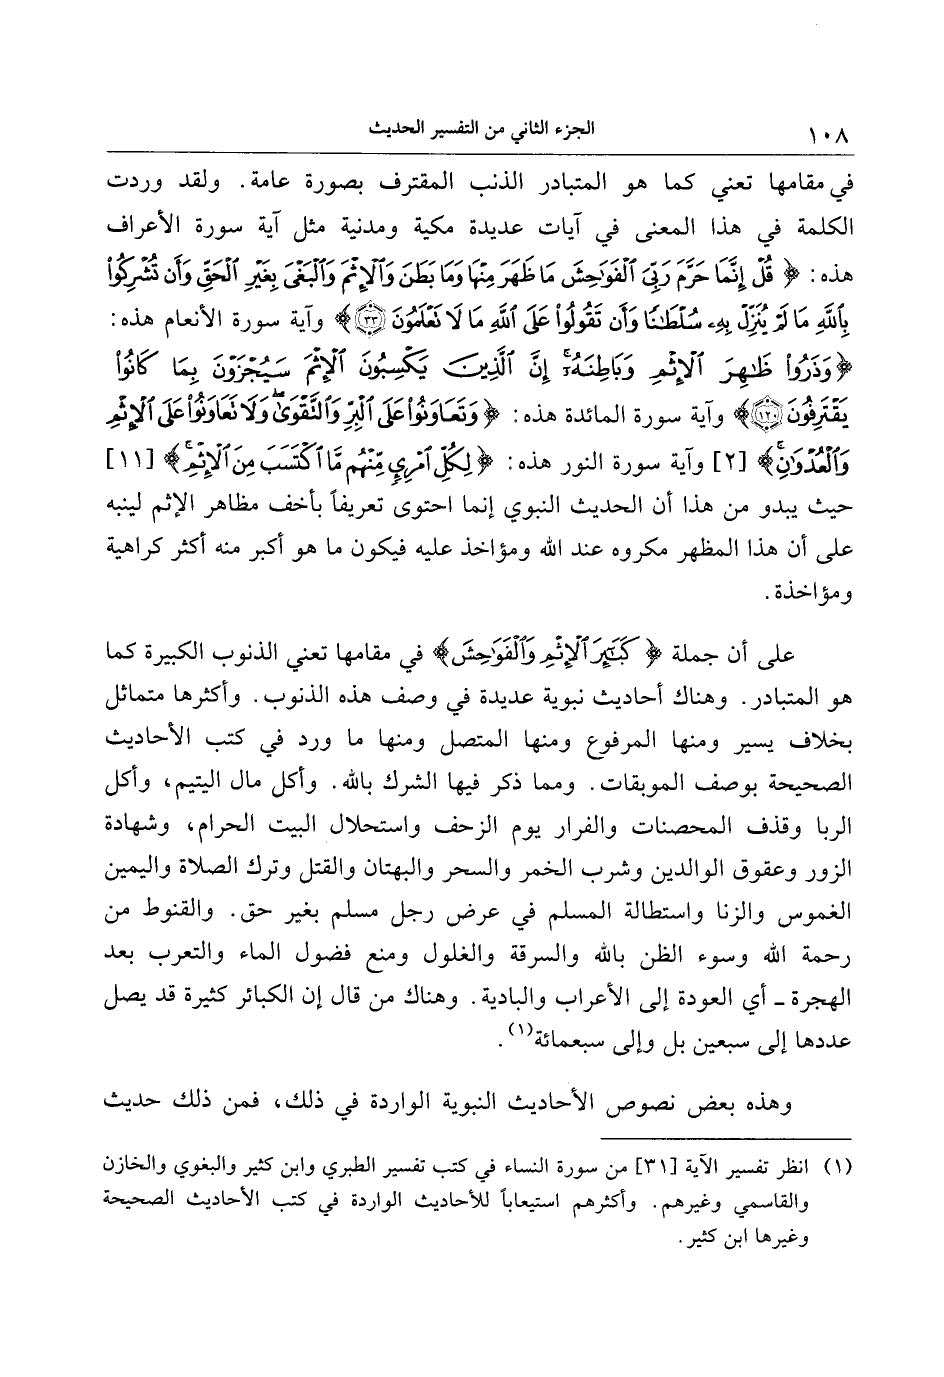 ١٠٨ الجزء الثاني من التفسير الحديث
في مقامها تعني كما هو المتبادر الذنب المقترف بصورة عامة. ولقد وردت
الكلمة في هذا المعنى في آيات عديدة مكية ومدنية مثل آية سورة الأعراف
هذه: ﴿ قُلْ إِنَّمَا حَرَّمَ رَبِّيَ ٱلْفَوَٰحِشَ مَا ظَهَرَ مِنْهَا وَمَا بَطَنَ وَٱلْإِثْمَ وَٱلْبَغْىَ بِغَيْرِ ٱلْحَقِّ وَأَن تُشْرِكُوا۟
بِٱللَّهِ مَا لَمْ يُنَزِّلْ بِهِۦ سُلْطَٰنًا وَأَن تَقُولُوا۟ عَلَى ٱللَّهِ مَا لَا تَعْلَمُونَ ٣٣﴾ وآية سورة الأنعام هذه:
﴿وَذَرُوا۟ ظَٰهِرَ ٱلْإِثْمِ وَبَاطِنَهُۥٓ إِنَّ ٱلَّذِينَ يَكْسِبُونَ ٱلْإِثْمَ سَيُجْزَوْنَ بِمَا كَانُوا۟
يَقْتَرِفُونَ ١٢٠﴾ وآية سورة المائدة هذه: ﴿ وَتَعَاوَنُوا۟ عَلَى ٱلْبِرِّ وَٱلتَّقْوَىٰ وَلَا تَعَاوَنُوا۟ عَلَى ٱلْإِثْمِ
وَٱلْعُدْوَٰنِ﴾ [٢] وآية سورة النور هذه: ﴿ لِكُلِّ ٱمْرِئٍ مِّنْهُم مَّا ٱكْتَسَبَ مِنَ ٱلْإِثْمِ﴾ [١١]
حيث يبدو من هذا أن الحديث النبوي إنما احتوى تعريفاً بأخف مظاهر الإثم لينبه
على أن هذا المظهر مكروه عند الله ومؤاخذ عليه فيكون ما هو أكبر منه أكثر كراهية
ومؤاخذة.
على أن جملة ﴿ كَبَٰٓئِرَ ٱلْإِثْمِ وَٱلْفَوَٰحِشَ﴾ في مقامها تعني الذنوب الكبيرة كما
هو المتبادر. وهناك أحاديث نبوية عديدة في وصف هذه الذنوب. وأكثرها متماثل
بخلاف يسير ومنها المرفوع ومنها المتصل ومنها ما ورد في كتب الأحاديث
الصحيحة بوصف الموبقات. ومما ذكر فيها الشرك بالله. وأكل مال اليتيم، وأكل
الربا وقذف المحصنات والفرار يوم الزحف واستحلال البيت الحرام، وشهادة
الزور وعقوق الوالدين وشرب الخمر والسحر والبهتان والقتل وترك الصلاة واليمين
الغموس والزنا واستطالة المسلم في عرض رجل مسلم بغير حق. والقنوط من
رحمة الله وسوء الظن بالله والسرقة والغلول ومنع فضول الماء والتعرب بعد
الهجرة - أي العودة إلى الأعراب والبادية. وهناك من قال إن الكبائر كثيرة قد يصل
عددها إلى سبعين بل وإلى سبعمائة(١).
وهذه بعض نصوص الأحاديث النبوية الواردة في ذلك، فمن ذلك حديث
(١) انظر تفسير الآية [٣١] من سورة النساء في كتب تفسير الطبري وابن كثير والبغوي والخازن
والقاسمي وغيرهم. وأكثرهم استيعاباً للأحاديث الواردة في كتب الأحاديث الصحيحة
وغيرها ابن كثير.